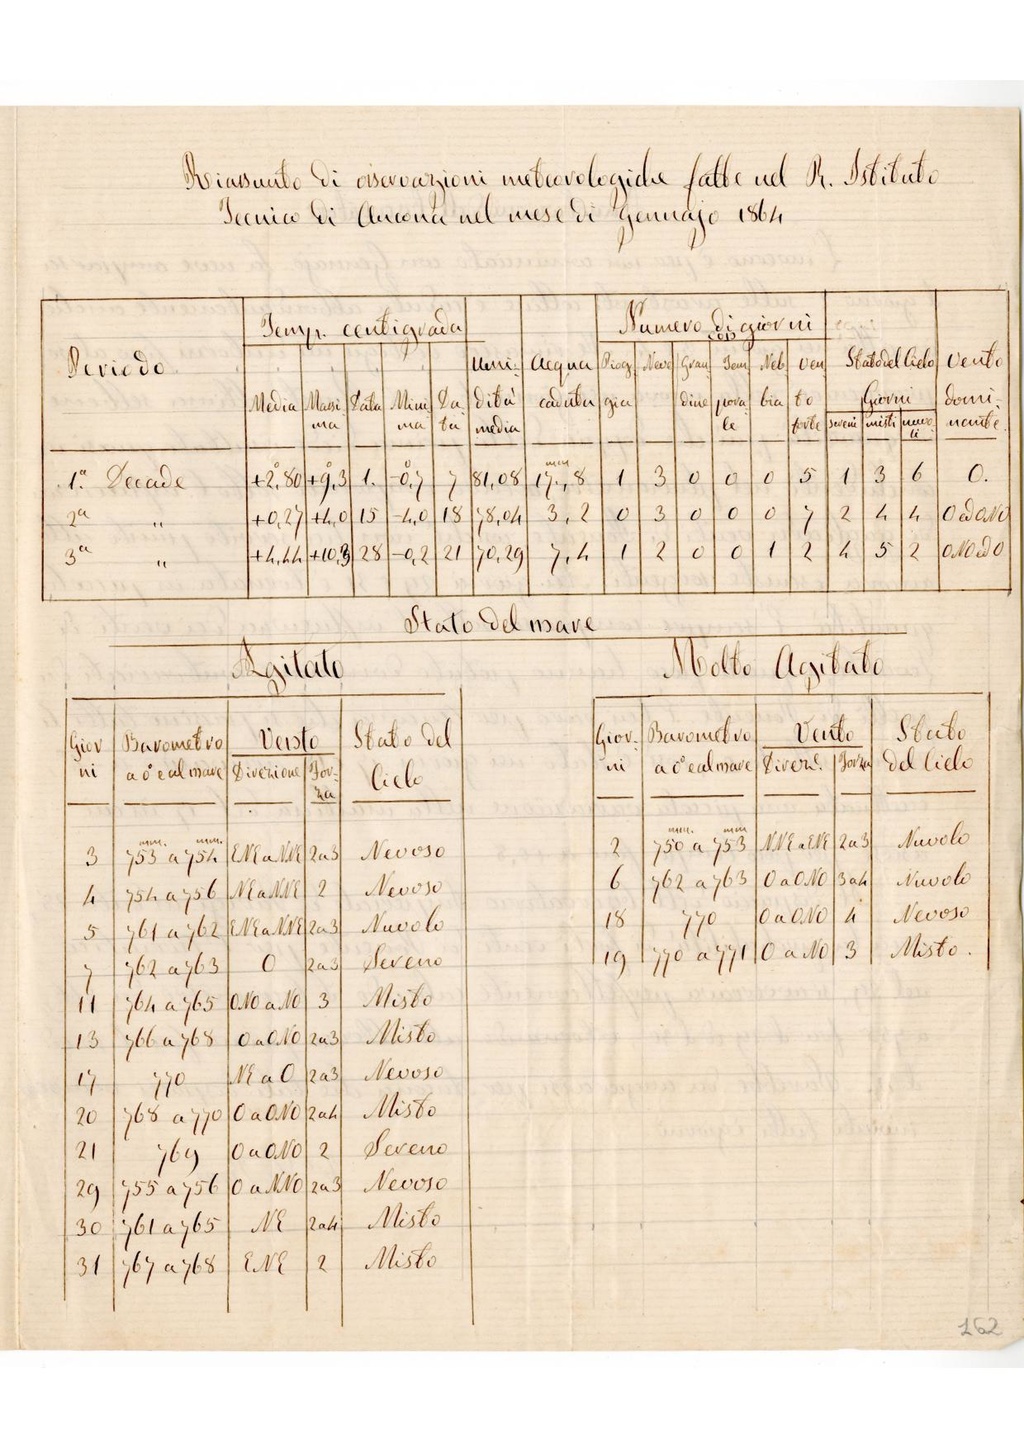 Riassunto di osservazioni meteorologiche fatte nel R. Istituto
Tecnico di Ancona nel mese di Gennajo 1864
Periodo
Temp. centigrada
Media Massi- ma Data Mini- ma Da- ta
Umi- dità media
Acqua caduta
Numero di giorni con
Piog- gia Neve Gran- dine Tem- pora- le Neb- bia Ven- to forte
Stato del Cielo
Giorni
sereni misti nuvo- li
Vento domi- nante.
1.ª Decade +2°,80 +9°,3 1. -0°,7 7 81,08 17mm,8 1 3 0 0 0 5 1 3 6 O.
2ª " +0,27 +4,0 15 -4,0 18 78,04 3,2 0 3 0 0 0 7 2 4 4 O ed ONO
3ª " +4,44 +10,3 28 -0,2 21 70,29 7,4 1 2 0 0 1 2 4 5 2 ONO ed O
Stato del mare
Agitato
Gior- ni Barometro a 0° e al mare Vento Direzione For- za Stato del Cielo
3 753mm. a 754mm. ENE a NNE 2a3 Nevoso
4 754 a 756 NE a NNE 2 Nevoso
5 761 a 762 ENE a NNE 2a3 Nuvolo
7 762 a 763 O 2a3 Sereno
11 764 a 765 ONO a NO 3 Misto
13 766 a 768 O a ONO 2a3 Misto
17 770 NE a O 2a3 Nevoso
20 768 a 770 O a ONO 2a4 Misto
21 769 O a ONO 2 Sereno
29 755 a 756 O a NNO 2a3 Nevoso
30 761 a 765 NE 2a4 Misto
31 767 a 768 ENE 2 Misto
Molto Agitato
Gior- ni Barometro a 0° e al mare Vento Direz.e Forza Stato del Cielo
2 750mm. a 753mm NNE a ENE 2a3 Nuvolo
6 762 a 763 O a ONO 3a4 Nuvolo
18 770 O a ONO 4 Nevoso
19 770 a 771 O a NO 3 Misto.
162